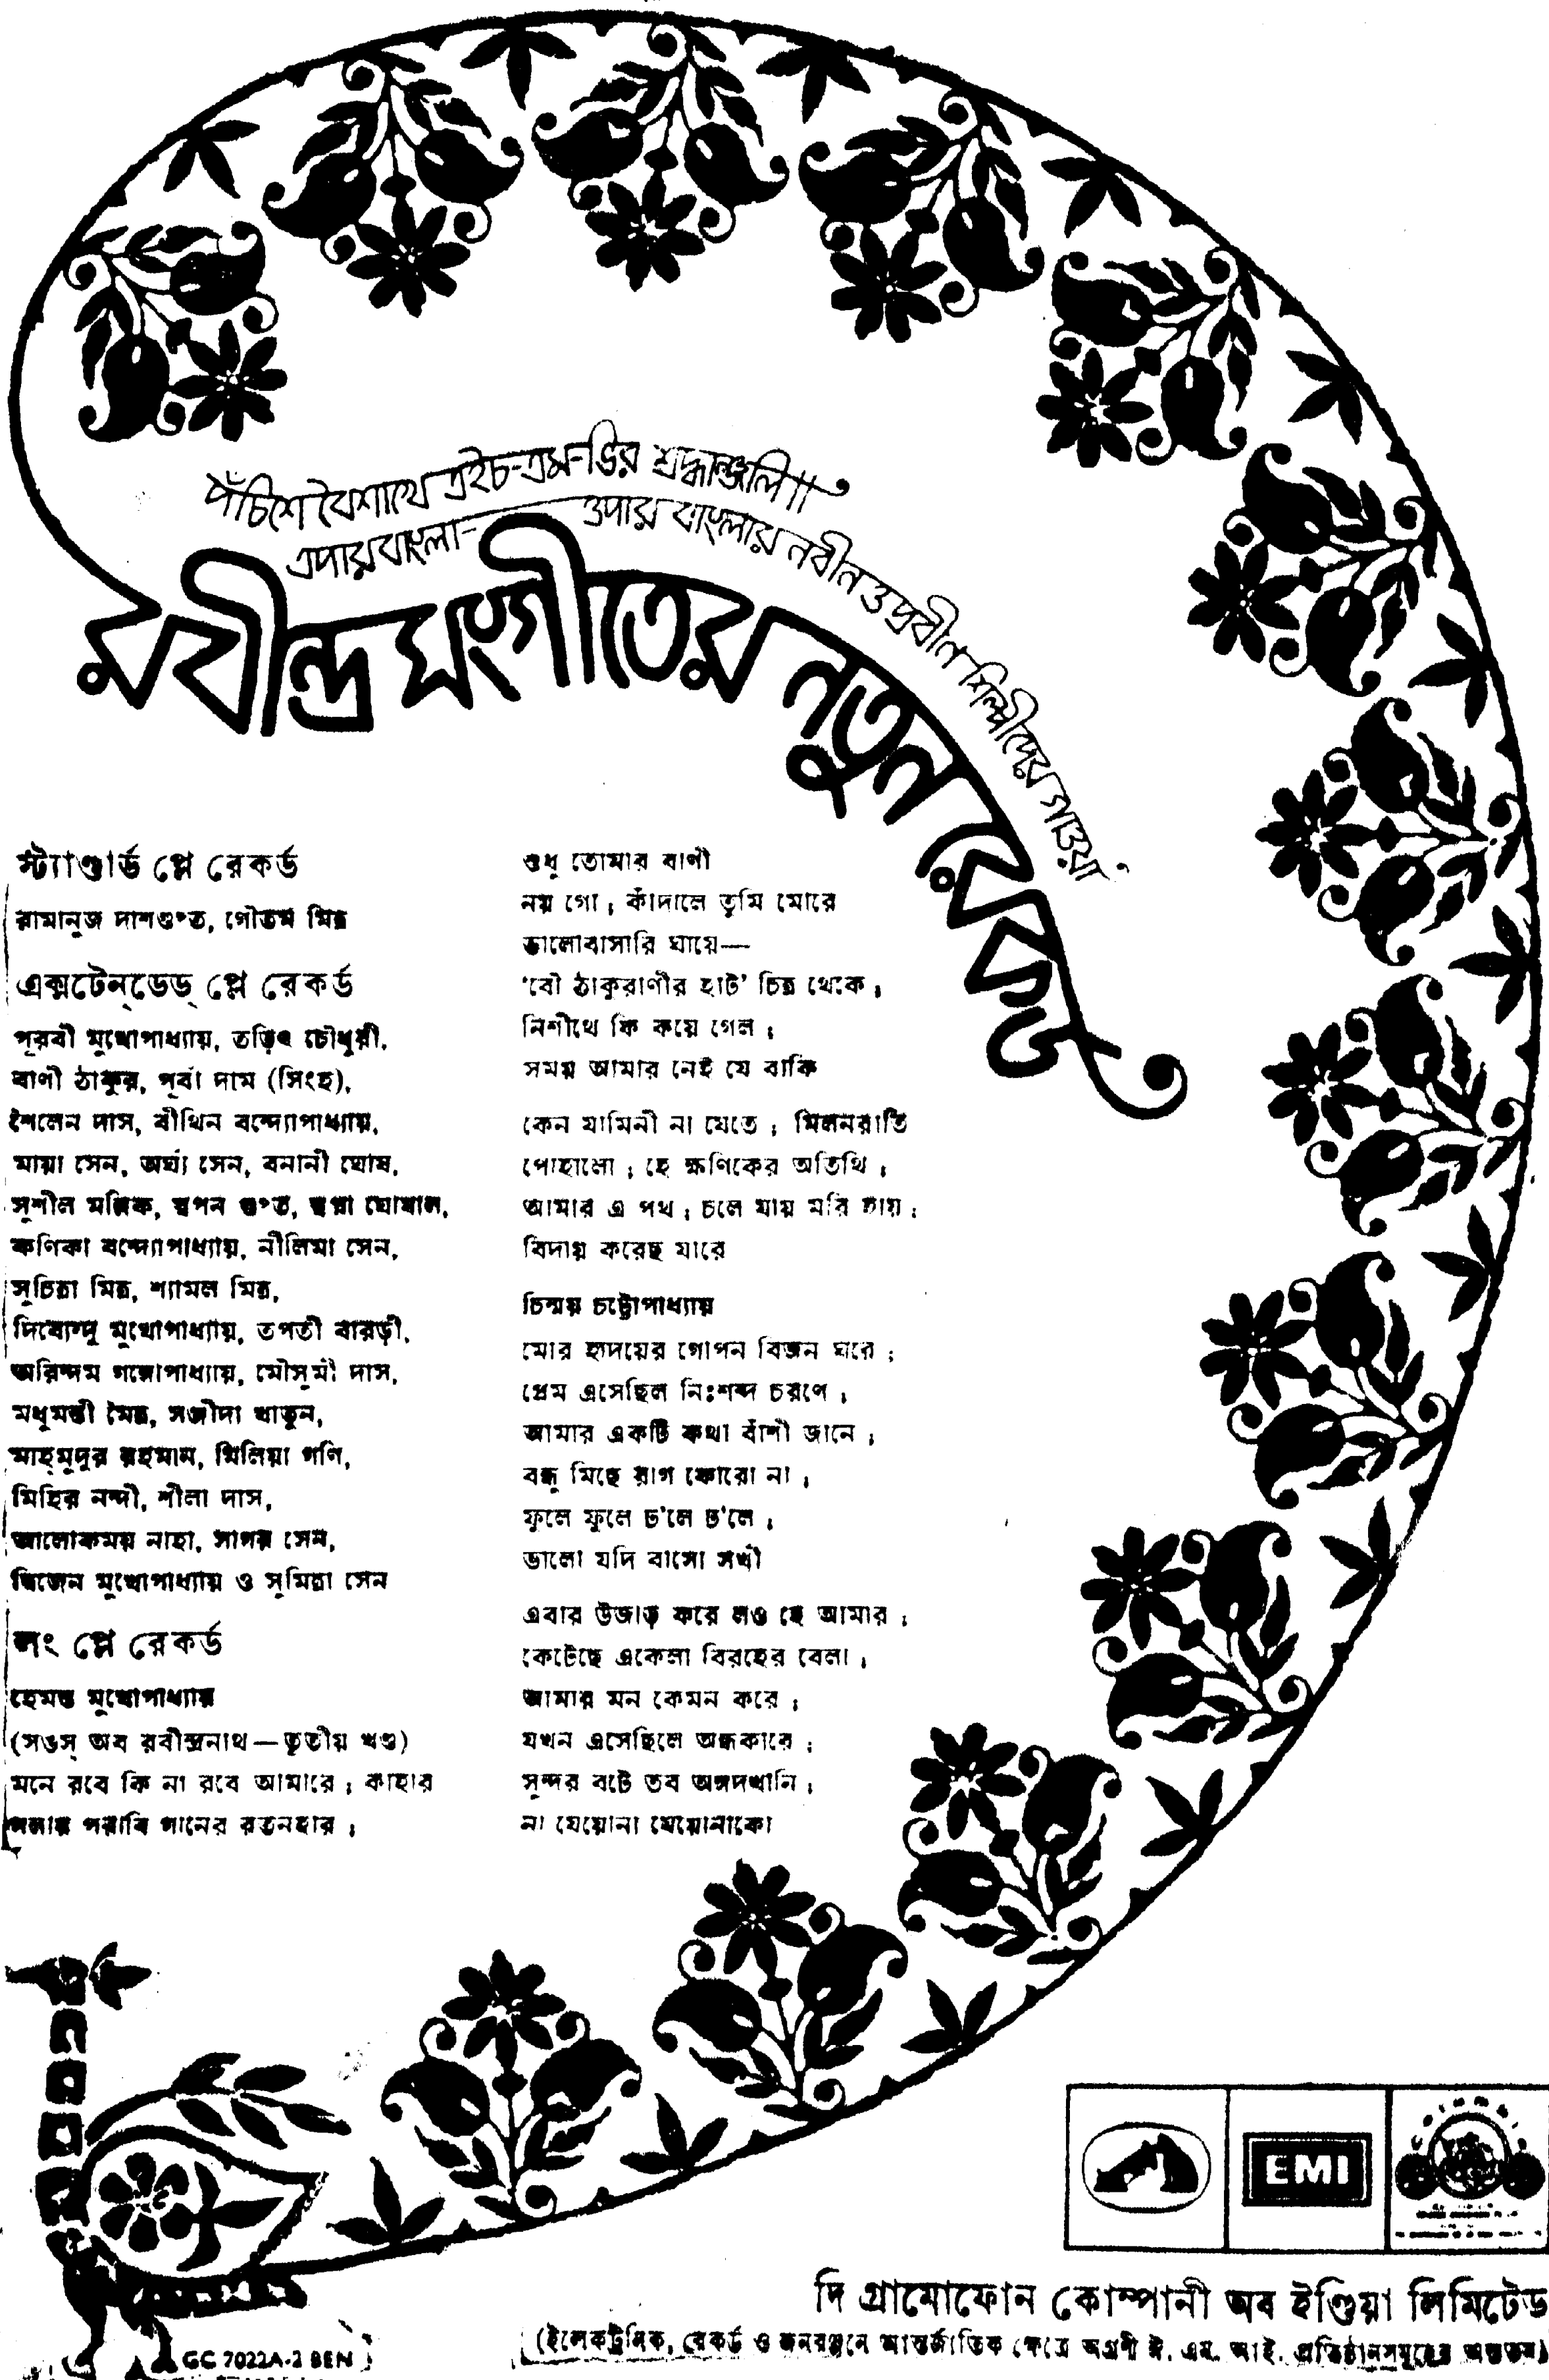 পঁচিশে বৈশাখে এইচ-এম-ভির শ্রদ্ধাঞ্জলি॥
এপার বাংলা-ওপার বাংলার নবীন ও প্রবীণ শিল্পীদের গাওয়া
রবীন্দ্র সংগীতের নূতন রেকর্ড
স্ট্যাণ্ডার্ড প্লে রেকর্ড
রামানুজ দাশগুপ্ত, গৌতম মিত্র
এক্সটেন্‌ডেড্‌ প্লে রেকর্ড
পূরবী মুখোপাধ্যায়, তড়িৎ চৌধুরী,
বাণী ঠাকুর, পূর্বা দাম (সিংহ),
শৈলেন দাস, বীথিন বন্দ্যোপাধ্যায়,
মায়া সেন, অর্ঘ্য সেন, বনানী ঘোষ,
সুশীল মল্লিক, স্বপন গুপ্ত, স্বপ্না ঘোষাল,
কণিকা বন্দ্যোপাধ্যায়, নীলিমা সেন,
সুচিত্রা মিত্র, শ্যামল মিত্র,
দিব্যেন্দু মুখোপাধ্যায়, তপতী বারড়ী,
অরিন্দম গঙ্গোপাধ্যায়, মৌসুমী দাস,
মধুমন্তী মৈত্র, সঞ্জীদা খাতুন,
মাহ্‌মুদুর রহমান, মিলিয়া গণি,
মিহির নন্দী, শীলা দাস,
আলোকময় নাহা, সাগর সেন,
দ্বিজেন মুখোপাধ্যায় ও সুমিত্রা সেন
লং প্লে রেকর্ড
হেমন্ত মুখোপাধ্যায়
(সঙস্‌ অব রবীন্দ্রনাথ—তৃতীয় খণ্ড)
মনে রবে কি না রবে আমারে ; কাহার
গলায় পরাবি গানের রতনহার ;
শুধু তোমার বাণী
নয় গো ; কাঁদালে তুমি মোরে
ভালোবাসারি ঘায়ে—
'বৌ ঠাকুরাণীর হাট' চিত্র থেকে ;
নিশীথে কি কয়ে গেল ;
সময় আমার নেই যে বাকি
কেন যামিনী না যেতে ; মিলনরাতি
পোহালো ; হে ক্ষণিকের অতিথি ;
আমার এ পথ ; চলে যায় মরি হায় ;
বিদায় করেছ যারে
চিন্ময় চট্টোপাধ্যায়
মোর হৃদয়ের গোপন বিজন ঘরে ;
প্রেম এসেছিল নিঃশব্দ চরণে ;
আমার একটি কথা বাঁশী জানে ;
বন্ধু মিছে রাগ কোরো না ;
ফুলে ফুলে ঢ'লে ঢ'লে ;
ভালো যদি বাসো সখী
এবার উজাড় করে লও হে আমার ;
কেটেছে একেলা বিরহের বেলা ;
আমার মন কেমন করে ;
যখন এসেছিলে অন্ধকারে ;
সুন্দর বটে তব অঙ্গদখানি ;
না যেয়োনা যেয়োনাকো
EMI
দি গ্রামোফোন কোম্পানী অব ইণ্ডিয়া লিমিটেড
(ইলেকট্রনিক, রেকর্ড ও জনরঞ্জনে আন্তর্জাতিক ক্ষেত্রে অগ্রণী ঈ. এম. আই. প্রতিষ্ঠানসমূহের অন্যতম)
GC 7022A-2 BEN